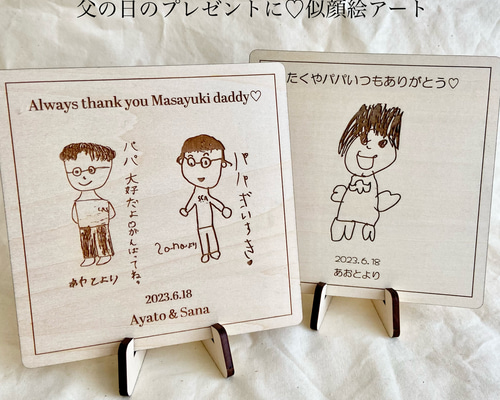 父の日のプレゼントに♡似顔絵アート
Always thank you Masayuki daddy♡
パパ
大好だよ
がんばってね。
あやとより
パパだいすき♥
Sanaより
2023.6.18
Ayato & Sana
たくやパパいつもありがとう♡
2023.6.18
あおとより